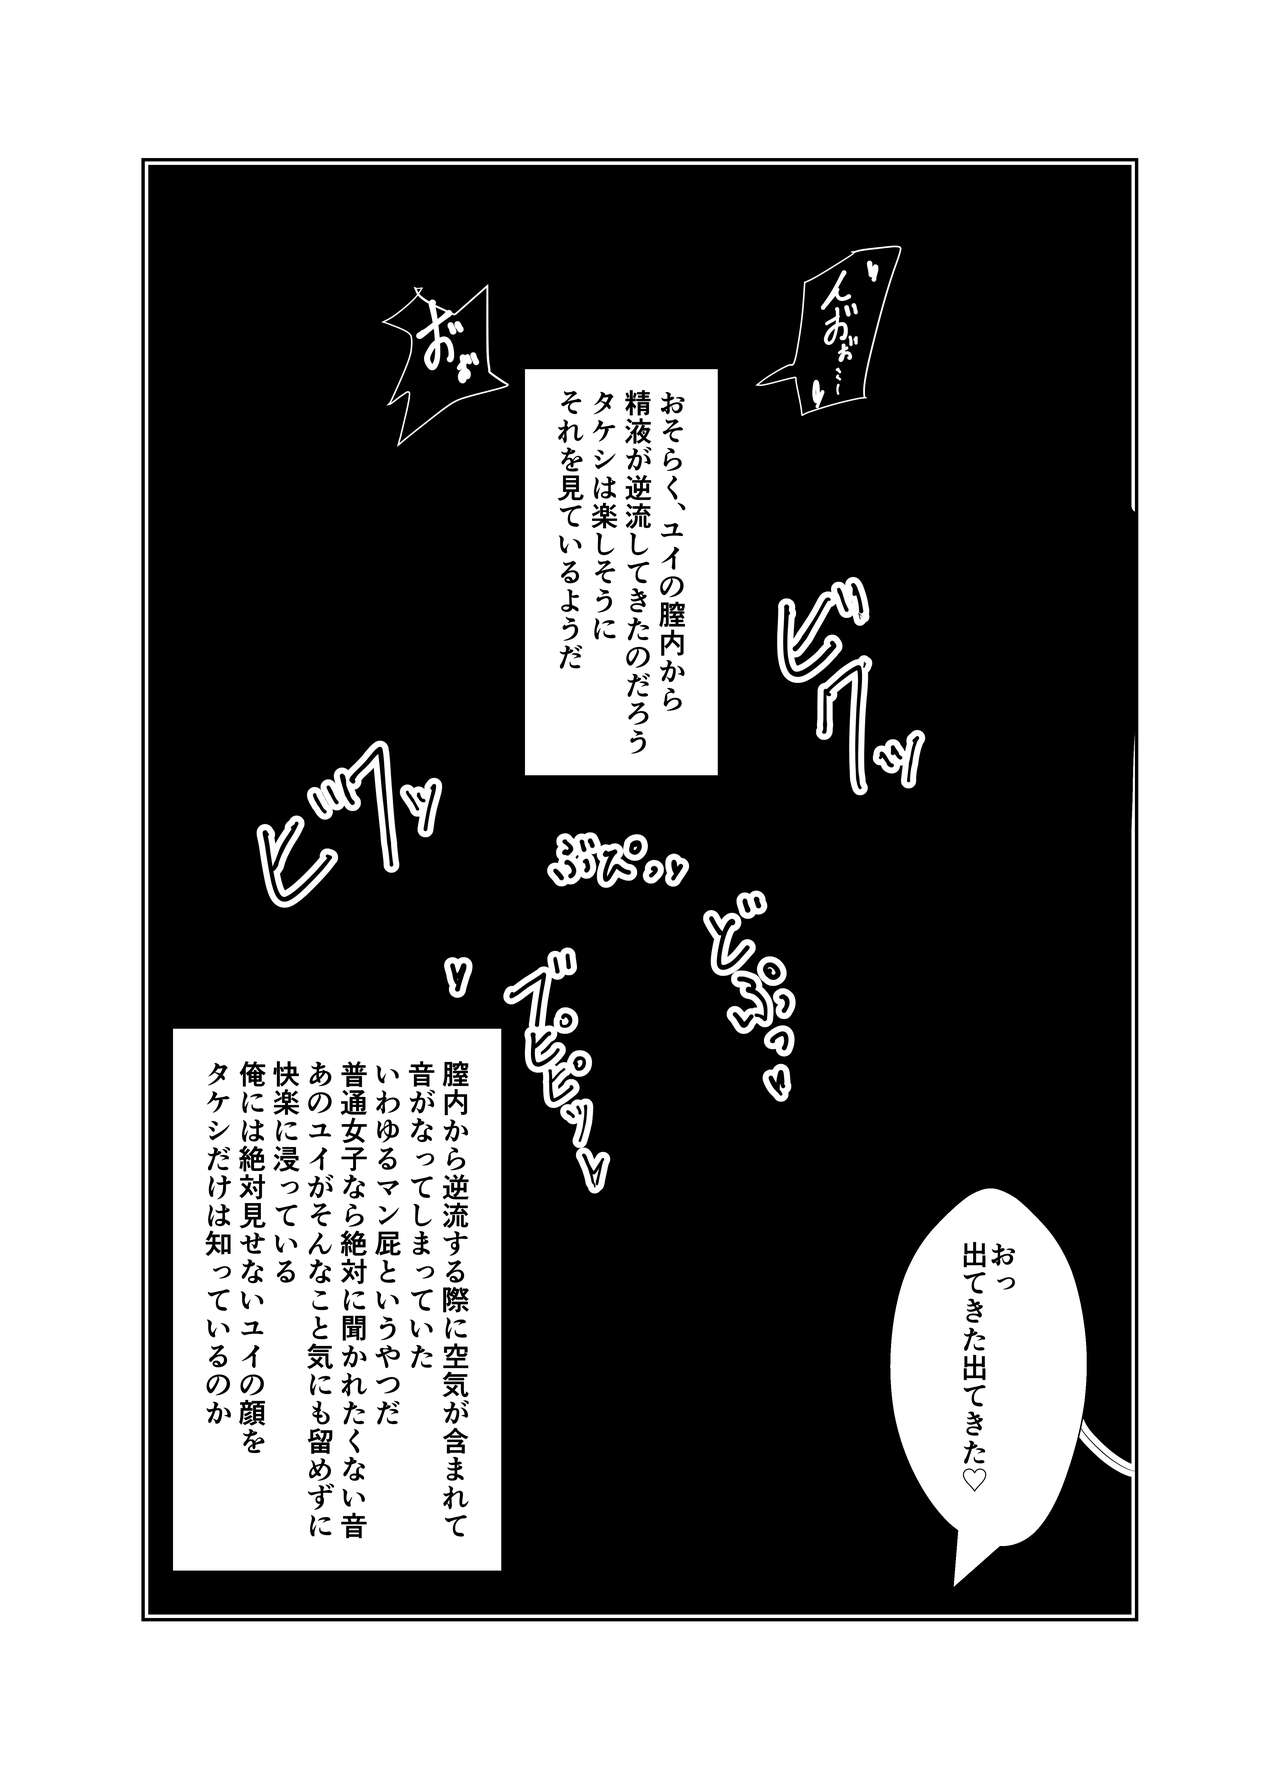 んおぉ…
お゛ぉ゛
おそらく、ユイの膣内から
精液が逆流してきたのだろう
タケシは楽しそうに
それを見ているようだ
ビクッ
ビクッ
ぶぴっ
どぷっ
ブピピッ
おっ
出てきた出てきた♡
膣内から逆流する際に空気が含まれて
音がなってしまっていた
いわゆるマン屁というやつだ
普通女子なら絶対に聞かれたくない音
あのユイがそんなこと気にも留めずに
快楽に浸っている
俺には絶対見せないユイの顔を
タケシだけは知っているのか